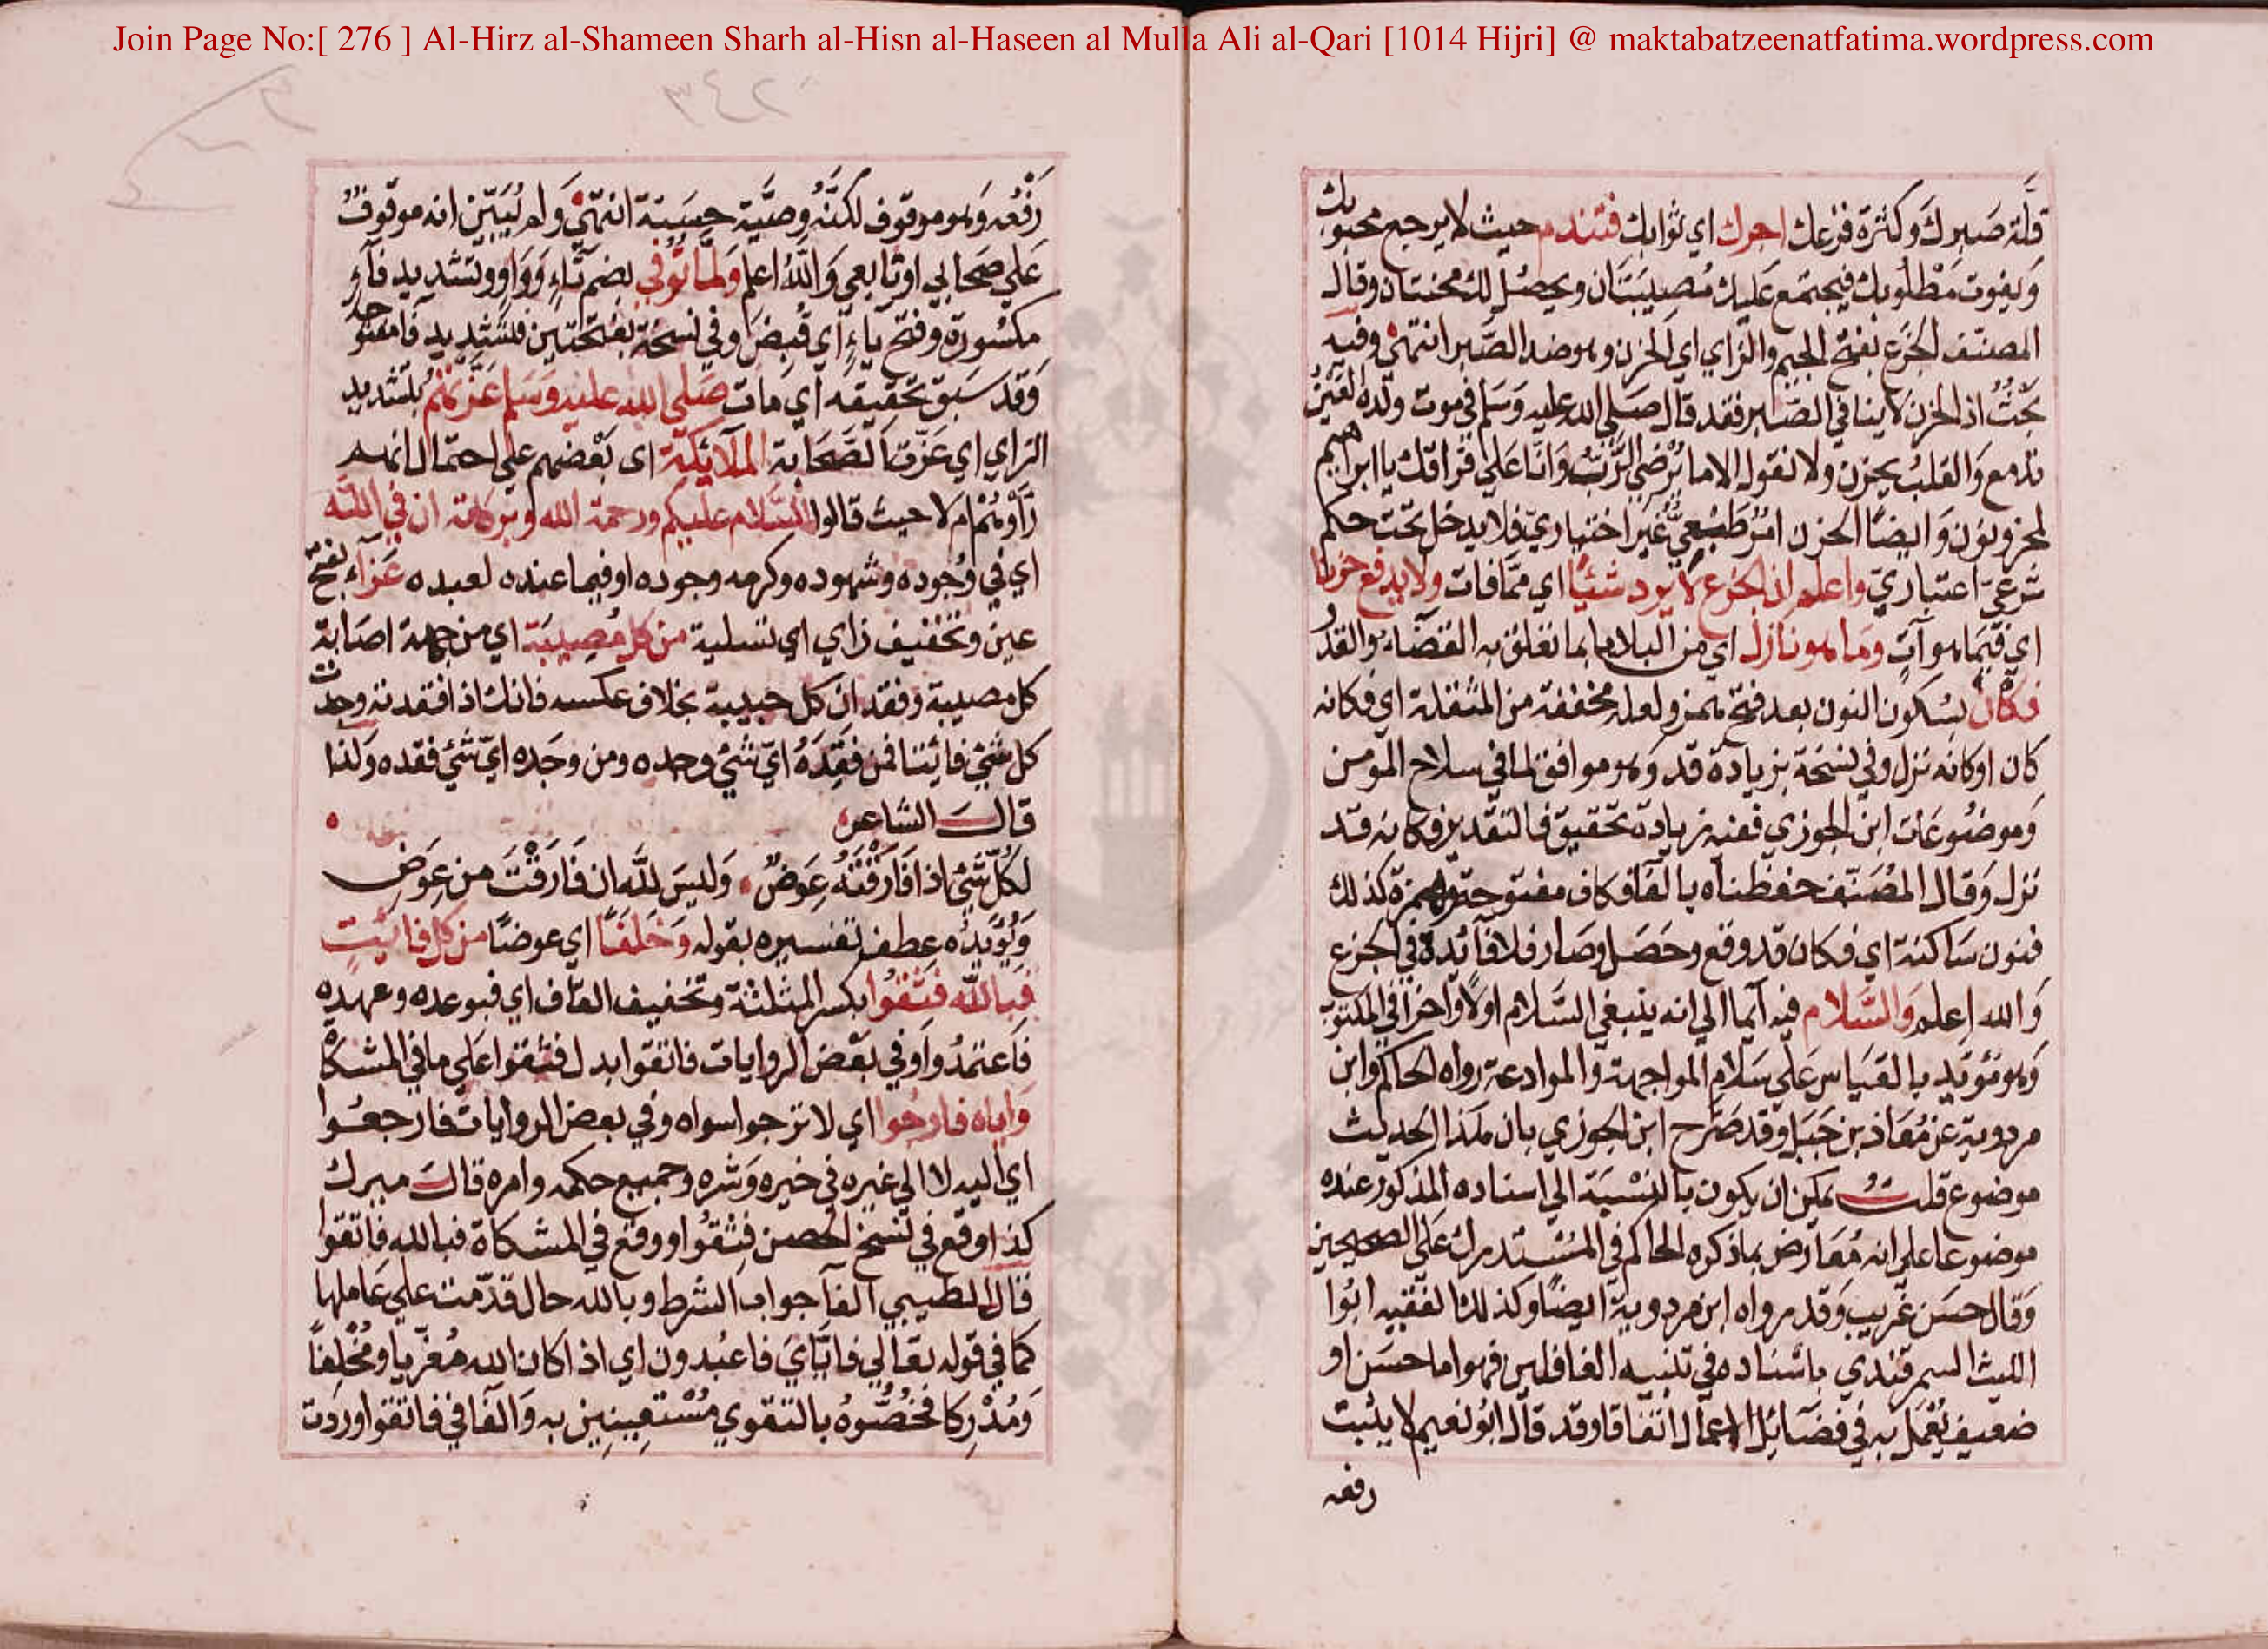 Join Page No:[ 276 ] Al-Hirz al-Shameen Sharh al-Hisn al-Haseen al Mulla Ali al-Qari [1014 Hijri] @ maktabatzeenatfatima.wordpress.com
قلة صبرك وكثرة فزعك اجرك اي ثوابك فتندم حيث لا يرجع محبوبك
ويفوت مطلوبك فيجتمع عليك مصيبتان ويحصل لك محنتان وقال
المصنف الجزع بفتح الجيم والزاي اي الحزن وهو ضد الصبر انتهى وفيه
بحث اذ الحزن لا ينافي الصبر فقد قال صلى الله عليه وسلم في موت ولده العين
تدمع والقلب يحزن ولا نقول الا ما يرضي الرب وانا على فراقك يا ابراهيم
لمحزونون وايضا الحزن امر طبيعي غير اختياري فلا يدخل تحت حكم
شرعي اعتباري واعلم ان الجزع لا يرد شيئا اي مما فات ولا يدفع حزنا
اي فيما هو آت وما هو نازل اي من البلاء ما بما تعلق به القضاء والقدر
فكان بسكون النون بعد فتح همز ولعله مخففة من المثقلة اي فكانه
كان او كانه نزل وفي نسخة بزيادة قد وهو موافق لما في سلاح المؤمن
وموضوعات ابن الجوزي ففيه زيادة تحقيق فالتقدير فكانه قد
نزل وقال المصنف حفظناه بالفاء فكاف مفتوحة وهمزة كذلك
فنون ساكنة اي فكان قد وقع وحصل وصار فلا فائدة في الجزع
والله اعلم والسلام فيه ايما الى انه ينبغي السلام اولا واخرا في المكتوب
وهو مؤيد بالقياس على سلام المواجهة والموادعة رواه الحاكم وابن
مردوية عن معاذ بن جبل وقد صرح ابن الجوزي بان هذا الحديث
موضوع قلت يمكن ان يكون بالنسبة الى اسناده المذكور عنده
موضوعا على انه معارض بما ذكره الحاكم في المستدرك على الصحيحين
وقال حسن غريب وقد رواه ابن مردوية ايضا وكذلك الفقيه ابوا
الليث السمرقندي باسناده في تنبيه الغافلين فهوا ما حسن او
ضعيف يعمل به في فضائل الاعمال اتفاقا وقد قال ابو نعيم لا يثبت
رفعه
٣٤٢
رفعه وهو موقوف لكنه وصية حسنة انتهى ولم يبين انه موقوف
على صحابي او تابعي والله اعلم ولما توفي بضم تاء وواو وتشديد فآء
مكسورة وفتح ياء اي قبض وفي نسخة بفتحتين فتشديد فا مفتوحة
وقد سبق تحقيقه اي مات صلى الله عليه وسلم عزتهم بتشديد
الزاي اي عزت الصحابة الملائكة اى بعضهم على احتمال انهم
رأوهم ام لا حيث قالوا السلام عليكم ورحمة الله وبركاته ان في الله
اي في وجوده وشهوده وكرمه وجوده او فيما عنده لعبده عزاء بفتح
عين وتخفيف زاي اي تسلية من كل مصيبة اي من جهة اصابة
كل مصيبة وفقدان كل حبيبة بخلاف عكسه فانك اذا فقدته وجدت
كل شيء فائتنا فمن فقده اي شيء وجده ومن وجده اي شيء فقده ولذا
قال الشاعر
لكل شيء اذا فارقته عوض وليس لله ان فارقت من عوض
ويؤيده عطف تفسيره بقوله وخلفا اي عوضا من كل فائت
فبالله فثقوا بكسر المثلثة وتخفيف القاف اي فبوعده وعهده
فاعتمدوا وفي بعض الروايات فاتقوا بدل فثقوا على ما في المشكاة
واياه فارجوا اي لا ترجوا سواه وفي بعض الروايات فارجعوا
اي اليه لا الى غيره في خيره وشره وجميع حكمه وامره قال ميرك
كذا وقع في نسخ الحصن فثقوا ووقع في المشكاة فبالله فاتقوا
قال الطيبي الفاء جواب الشرط وبالله حال قدمت على عاملها
كما في قوله تعالى فاياي فاعبدون اي اذا كان الله معزيا ومخلفا
ومدركا فخصوه بالتقوي مستعينين به والفا في فاتقوا وردت